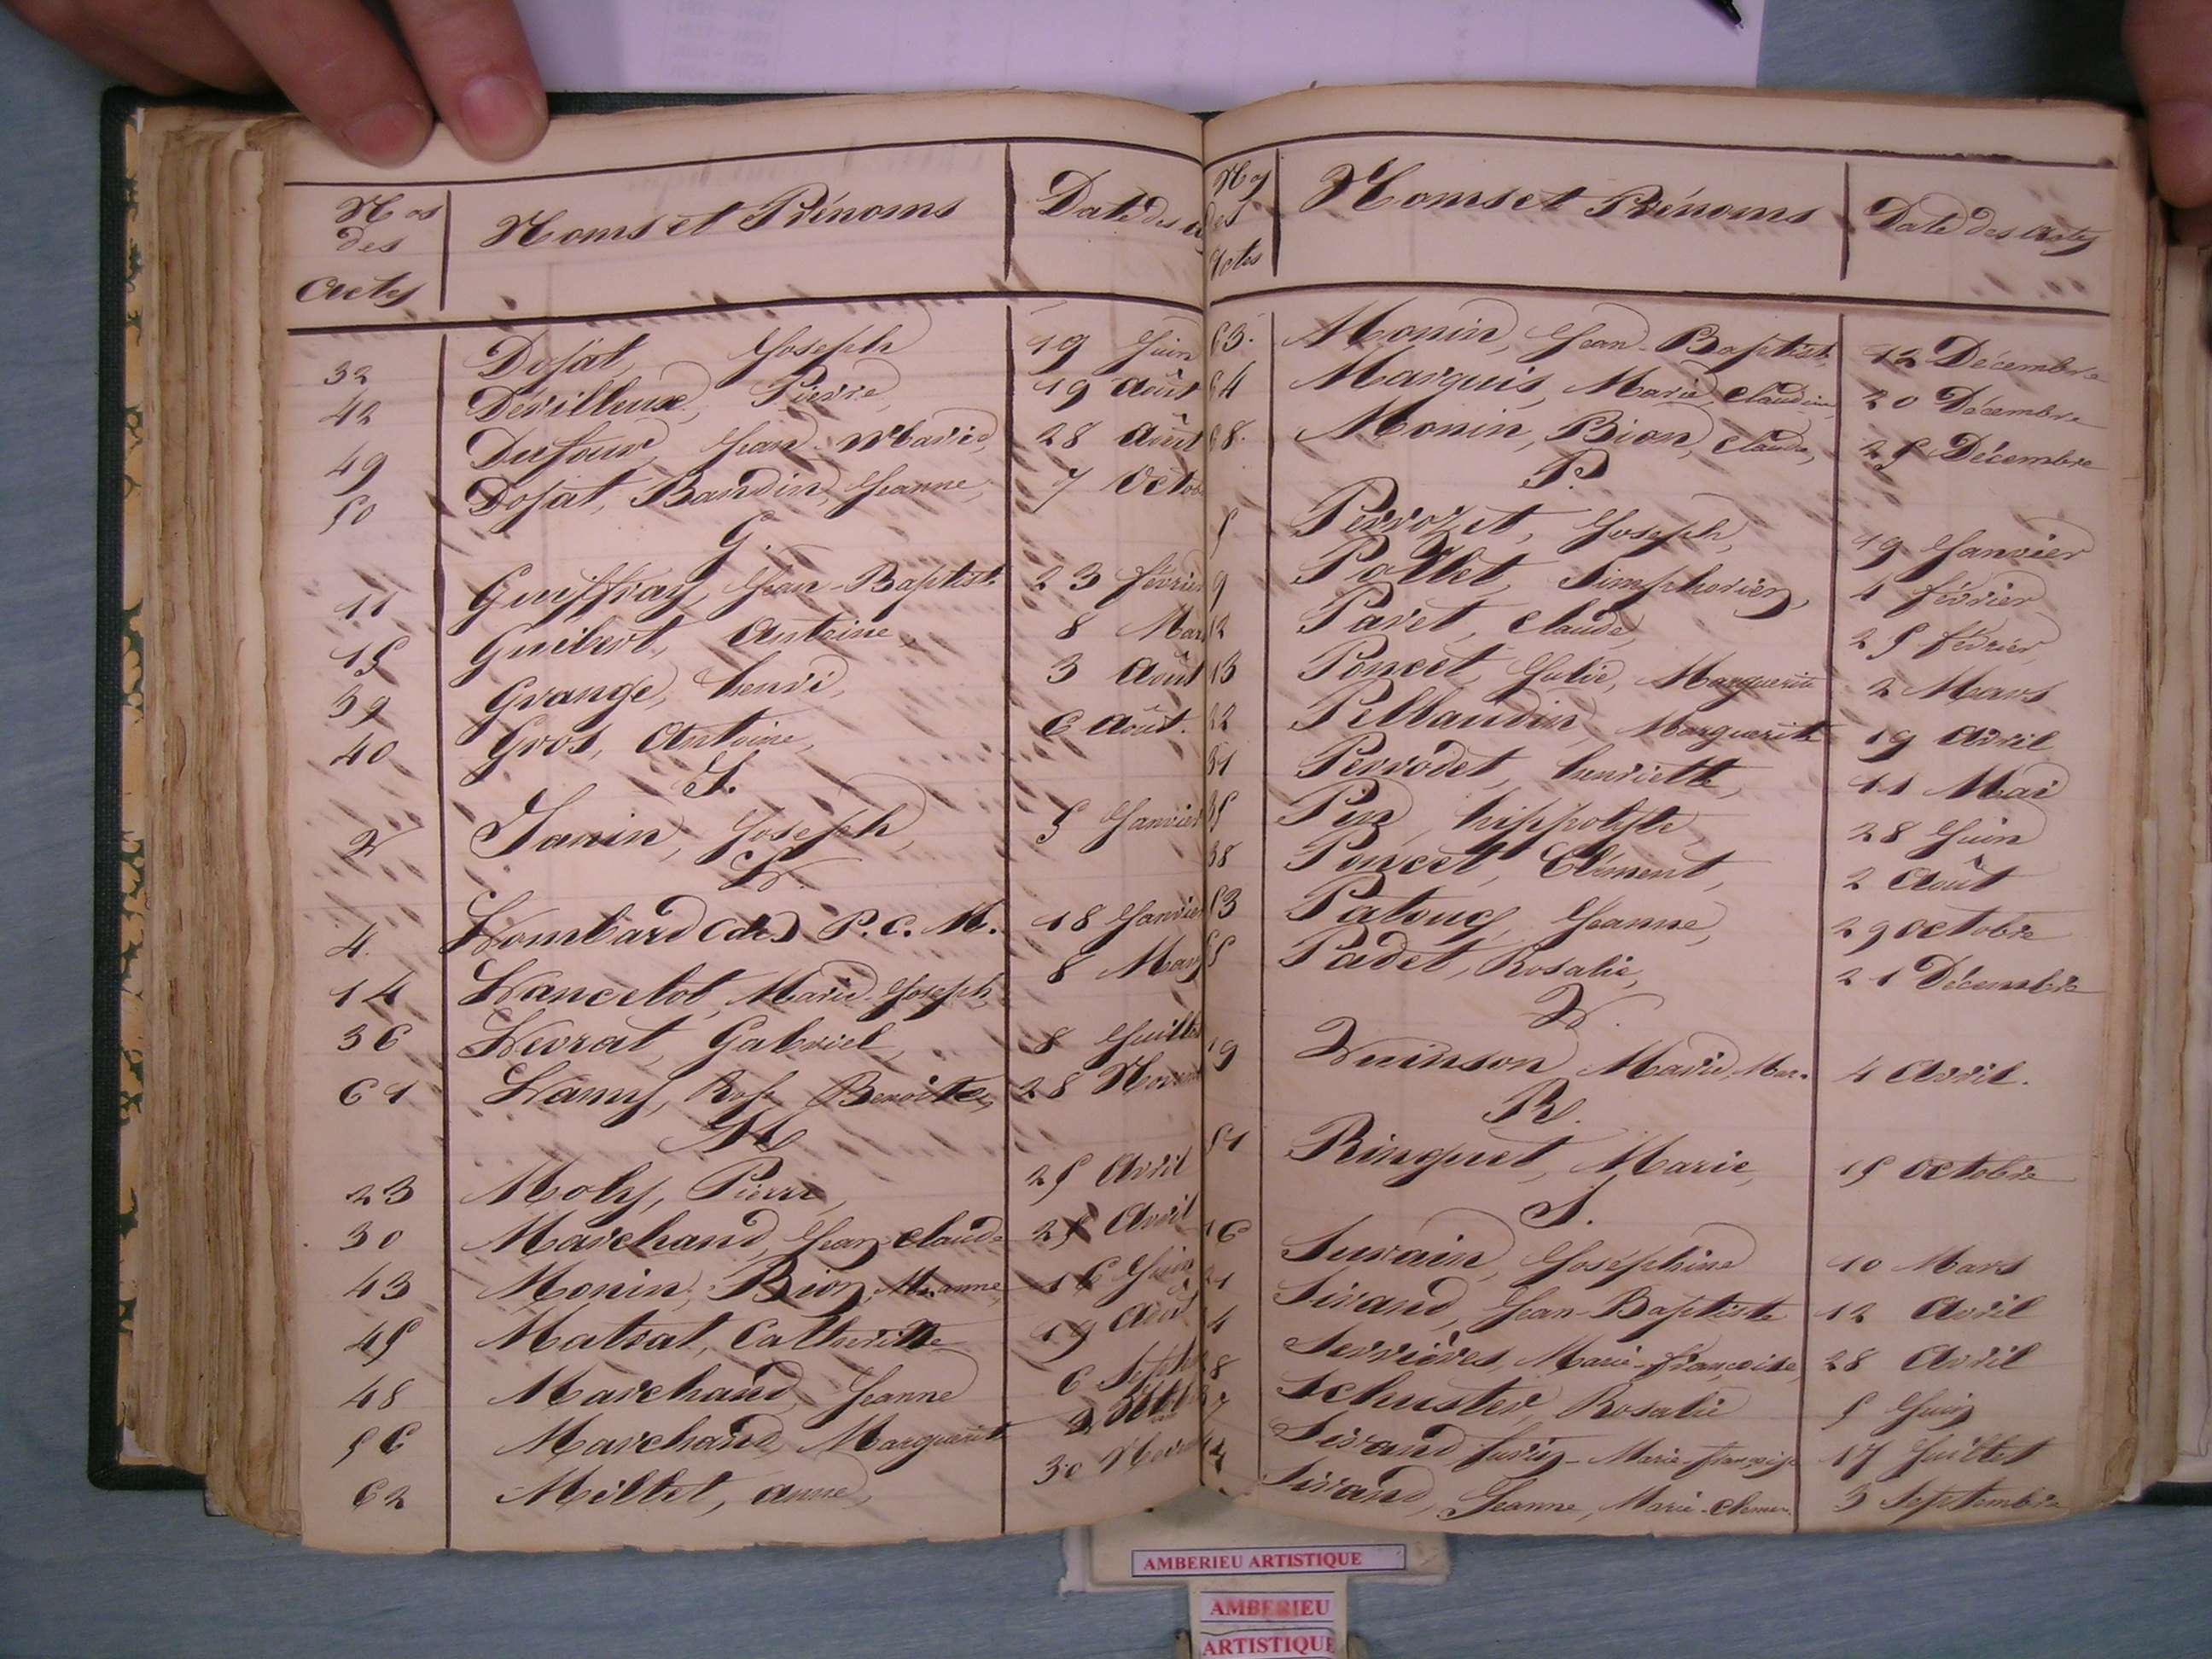 Nos
des
Actes
Noms et Prénoms
Date des
32 Dosat, Joseph 19 Juin
42 Dévilleux, Pierre 19 Août
49 Dufour, Jean-Marie, 28 Août
50 Dosat, Baudin, Jeanne, 7 Octob
G.
11 Guiffray, Jean-Baptiste 23 février
15 Guibert, Antoine, 8 Mars
39 Grange, henri, 3 Août
40 Gros, Antoine, 6 Août.
J.
2 Janin, Joseph, 5 Janvier
L.
4. Lombard (de) P. C. M. 18 Janvier
14 Lancelot, Marie-Joseph, 8 Mars
36 Levrat, Gabriel, 8 Juillet
61 Lamy, Benoîte, 28 Novem
M
23 Moly, Pierre, 25 Avril
30 Marchand, Jean-Claude 25 Avril
43 Monin, Bion, M. anne, 16 Juin
45 Matrat, Catherine 19 Août
48 Marchand, Jeanne 6 Septb
56 Marchand, Marguerite
62 Millet, anne, 30 Novem
Nos
des
Actes
Noms et Prénoms
Date des actes
63. Monin, Jean-Baptiste, 12 Décembre
64 Marquis, Marie Claudine, 20 Décembre
68. Monin, Bion, Claude, 25 Décembre
P.
5 Perrozet, Joseph, 19 Janvier
9 Pollet, Simphorien, 4 février
12 Pavet, Claude, 25 février
13 Poncet, Julie, Marguerite 2 Mars
22 Pellaudin, Marguerite 19 Avril
31 Perrodet, henriette, 11 Mai
35 hippolyte, 28 Juin
38 Poncet, Clément, 2 Août
53 Jeanne, 29 octobre
65 Padet, Rosalie, 21 Décembre
19 Quinson, Marie, Mar. 4 Avril.
R.
51 Ringuet, Marie, 15 octobre
S.
16 Suvain, Joséphine 10 Mars
21 Sivand, Jean-Baptiste 12 Avril
Serrières, Marie-françoise, 28 Avril
8 Schuster, Rosalie 5 Juin
37 Sivand, Marie-françoise 17 Juillet
Sivand, Jeanne, Marie-Clémen. 3 Septembre
AMBERIEU ARTISTIQUE
AMBERIEU
ARTISTIQUE